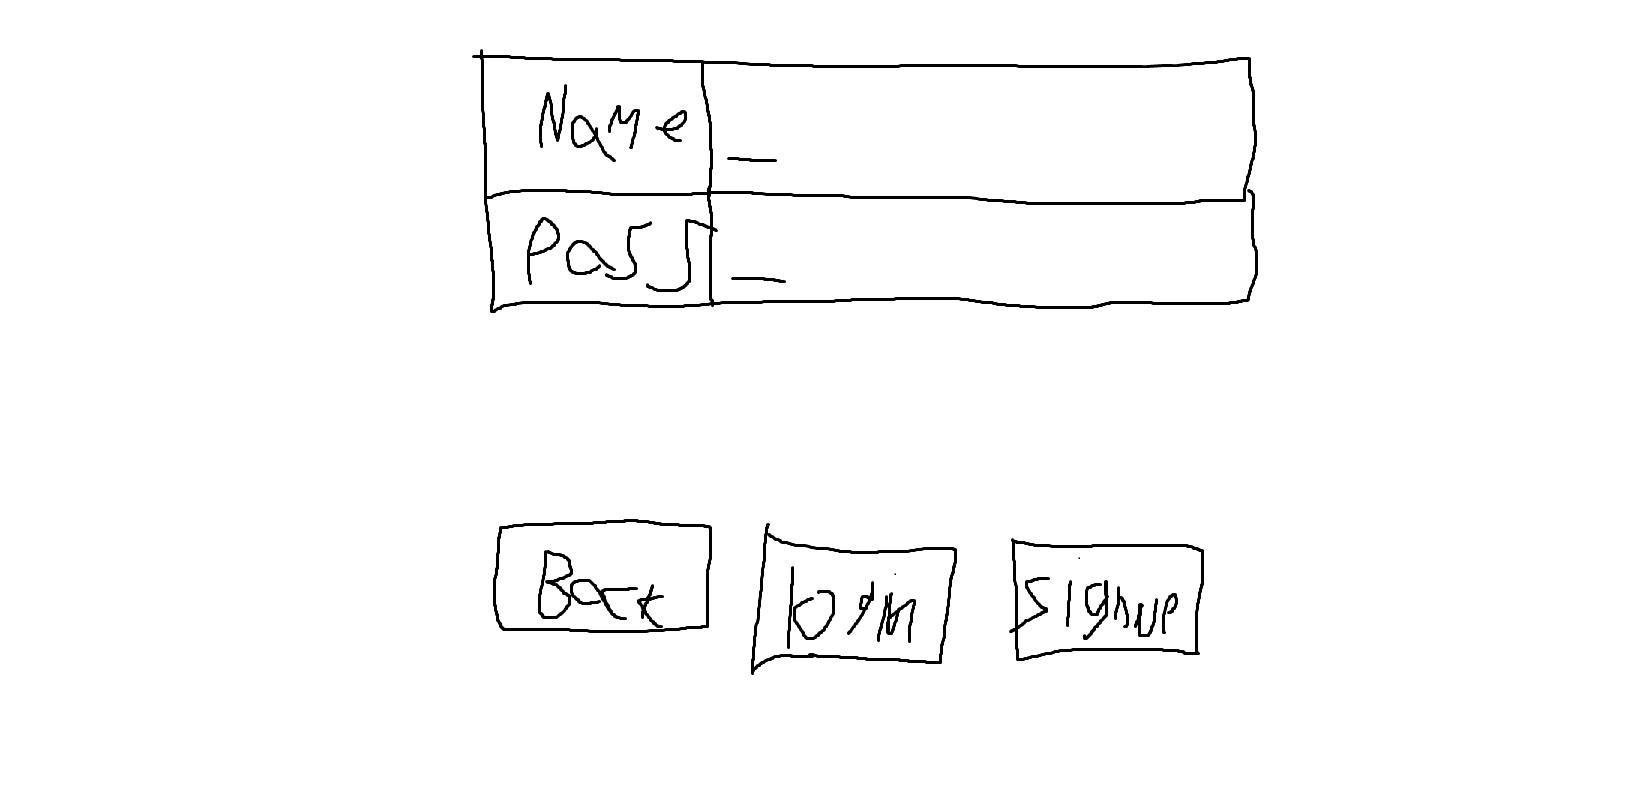 Name _
Pass _
Back login signup